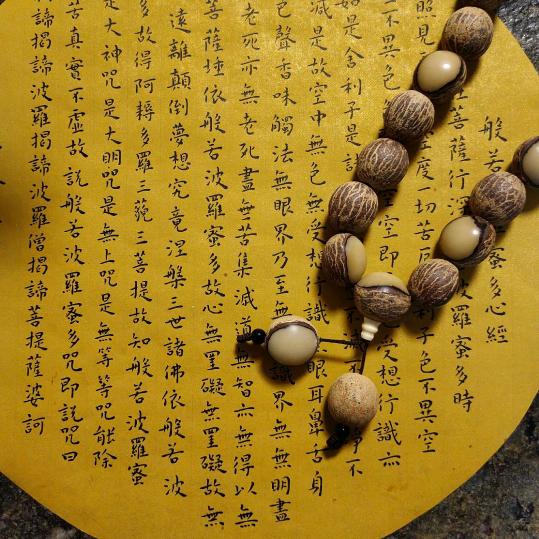 般若 蜜多心經
菩薩行深 波羅蜜多時
照見 空度一切苦厄 利子色不異空
不異色 空空即 受想行識亦
如是舍利子是諸 不
減是故空中無色無受想行識 眼耳鼻舌身
色聲香味觸法無眼界乃至無 識界無無明盡
老死亦無老死盡無苦集滅道無智亦無得以無
菩薩埵依般若波羅蜜多故心無罣礙無罣礙故無
遠離顛倒夢想究竟涅槃三世諸佛依般若波
多故得阿耨多羅三藐三菩提故知般若波羅蜜
是大神咒是大明咒是無上咒是無等等咒能除
苦真實不虛故說般若波羅蜜多咒即說咒曰
諦揭諦波羅揭諦波羅僧揭諦菩提薩婆訶